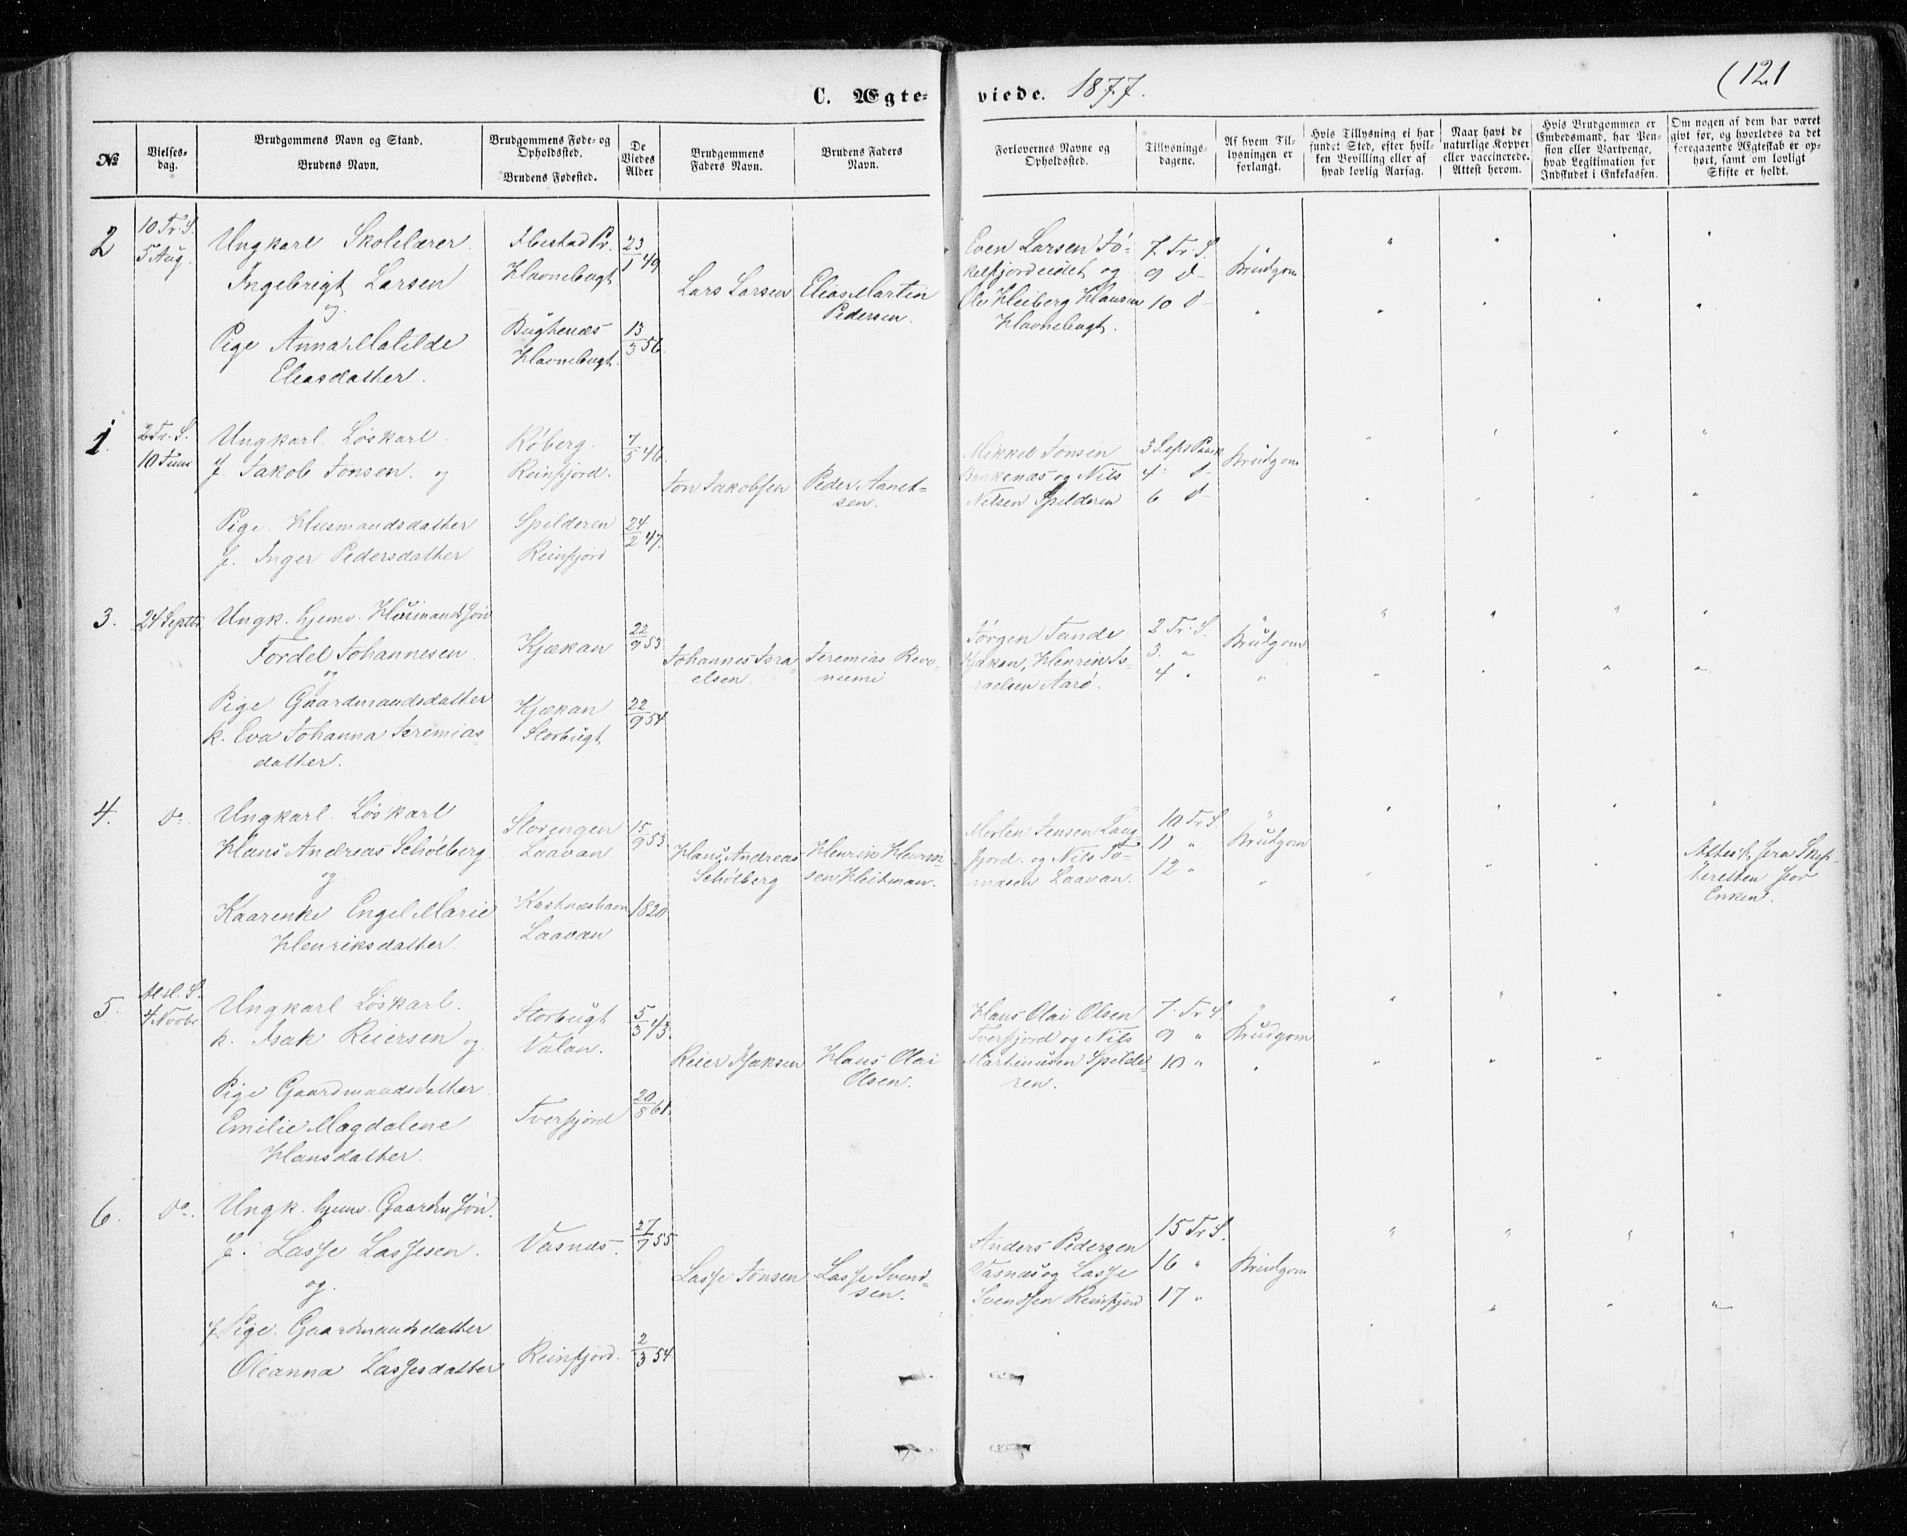 C. Ægte-viede. 1877. (121
No
Vielses-
dag.
Brudgommens Navn og Stand.
Brudens Navn.
Brudgommens Føde- og
Opholdssted.
Brudens Fødested.
De
Viedes
Alder
Brudgommens
Faders Navn.
Brudens Faders
Navn.
Forlovernes Navne og
Opholdssted.
Tillysnings-
dagene.
Af hvem Til-
lysningen er
forlangt.
Hvis Tillysning ei har
fundet Sted, efter hvil-
ken Bevilling eller af
hvad lovlig Aarsag.
Naar havt de
naturlige Kopper
eller vaccinerede.
Attest herom.
Hvis Brudgommen er
Embedsmand, har Pen-
sion eller Vartpenge,
hvad Legitimation for
Indskudet i Enkekassen.
Om nogen af dem har været
givt før, og hvorledes da det
foregaaende Ægteskab er op-
hørt, samt om lovligt
Skifte er holdt.
2
10 Tr. S.
5 Aug.
Ungkarl Skolelærer
Ingebrigt Larsen
og
Pige Anna Matilde
Eliasdatter.
Ibestad Pr.
Havnebugt
Bugtenæs
Havnebugt.
23/1 49
13/3 56.
Lars Larsen
Elias Martin
Pedersen.
Even Larsen Jø-
kelfjordeidet og
Ole Heiberg Hansen
Havnebugt.
7 Tr. S.
9 d-
10 d-
Brudgom
1.
2 Tr. S.
10 Juni
Ungkarl. Løskarl.
f. Jakob Jonsen. og
Pige. Husmandsdatter
f. Inger Pedersdatter
Røberg.
Reinfjord.
Spilderen
Reinfjord
7/5 46.
24/2 47.
Jon Jakobsen
Peder Aanet-
sen.
Mikkel Jonsen
og Nils
Nielsen Spilderen
3 S. ef. Paask
4 d-
6 d-
Brudgom
3.
24 Septbr
Ungk. hjemv. Husmands Søn
Fordel Johannesen
og
Pige Gaardmandsdatter
k. Eva Johanna Jeremias-
datter.
Kjækan
Kjækan
Storbugt
22/9 53
22/9 54
Johannes Isra-
elsen.
Jeremias
niemi
Jørgen Tande
Kjækan, Henrik Is-
raelsen Aarø.
2 Tr. S.
3. "
4 "
Brudgom
4.
do.
Ungkarl. Løskarl
Hans Andreas Schølberg.
og
Kaarenke Engel Marie
Henriksdatter.
Storengen
Laavan.
Kastnæshavn
Laavan
15/9 53
1820
Hans Andreas
Schølberg
Henrik Henrik-
sen Heitman.
Morten Jensen Lang-
fjord. og Nils To-
masen Laavan.
10 Tr S.
11 "
12 "
Brudgom
Attest fra Skif-
teretten for
Enken.
5.
4 Novbr
Ungkarl Løskarl.
k. Isak Reiersen og
Pige Gaardmandsdatter
Emilie Magdalene
Hansdatter.
Storbugt
Valan.
Tverfjord
5/3 43.
20/8 61.
Reier Isaksen
Hans Olai
Olsen.
Hans Olai Olsen
Tverfjord og Nils
Martinusen Spilde-
ren.
7. Tr S.
9 "
10 "
Brudgom
6.
do.
Ungk. hjemv. Gaardm Søn.
f. Lasse Lassesen.
og.
f. Pige. Gaardmandsdatter
Oleanna Lassesdatter
Vasnæs.
Reinfjord.
27/9 55
2/3 54
Lasse Jonsen
Lasse Svend-
sen.
Anders Pedersen
Vasnæs og Lasse
Svendsen Reinfjord
15 Tr S.
16 "
17 "
Brudgom